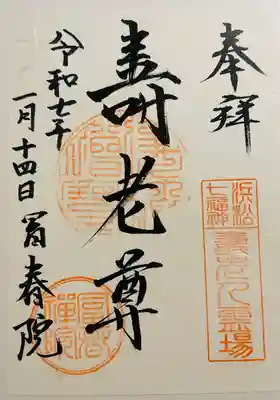 奉拝
浜松
七福神
寿老人霊場
壽老尊
令和七年
一月十四日 箇春院